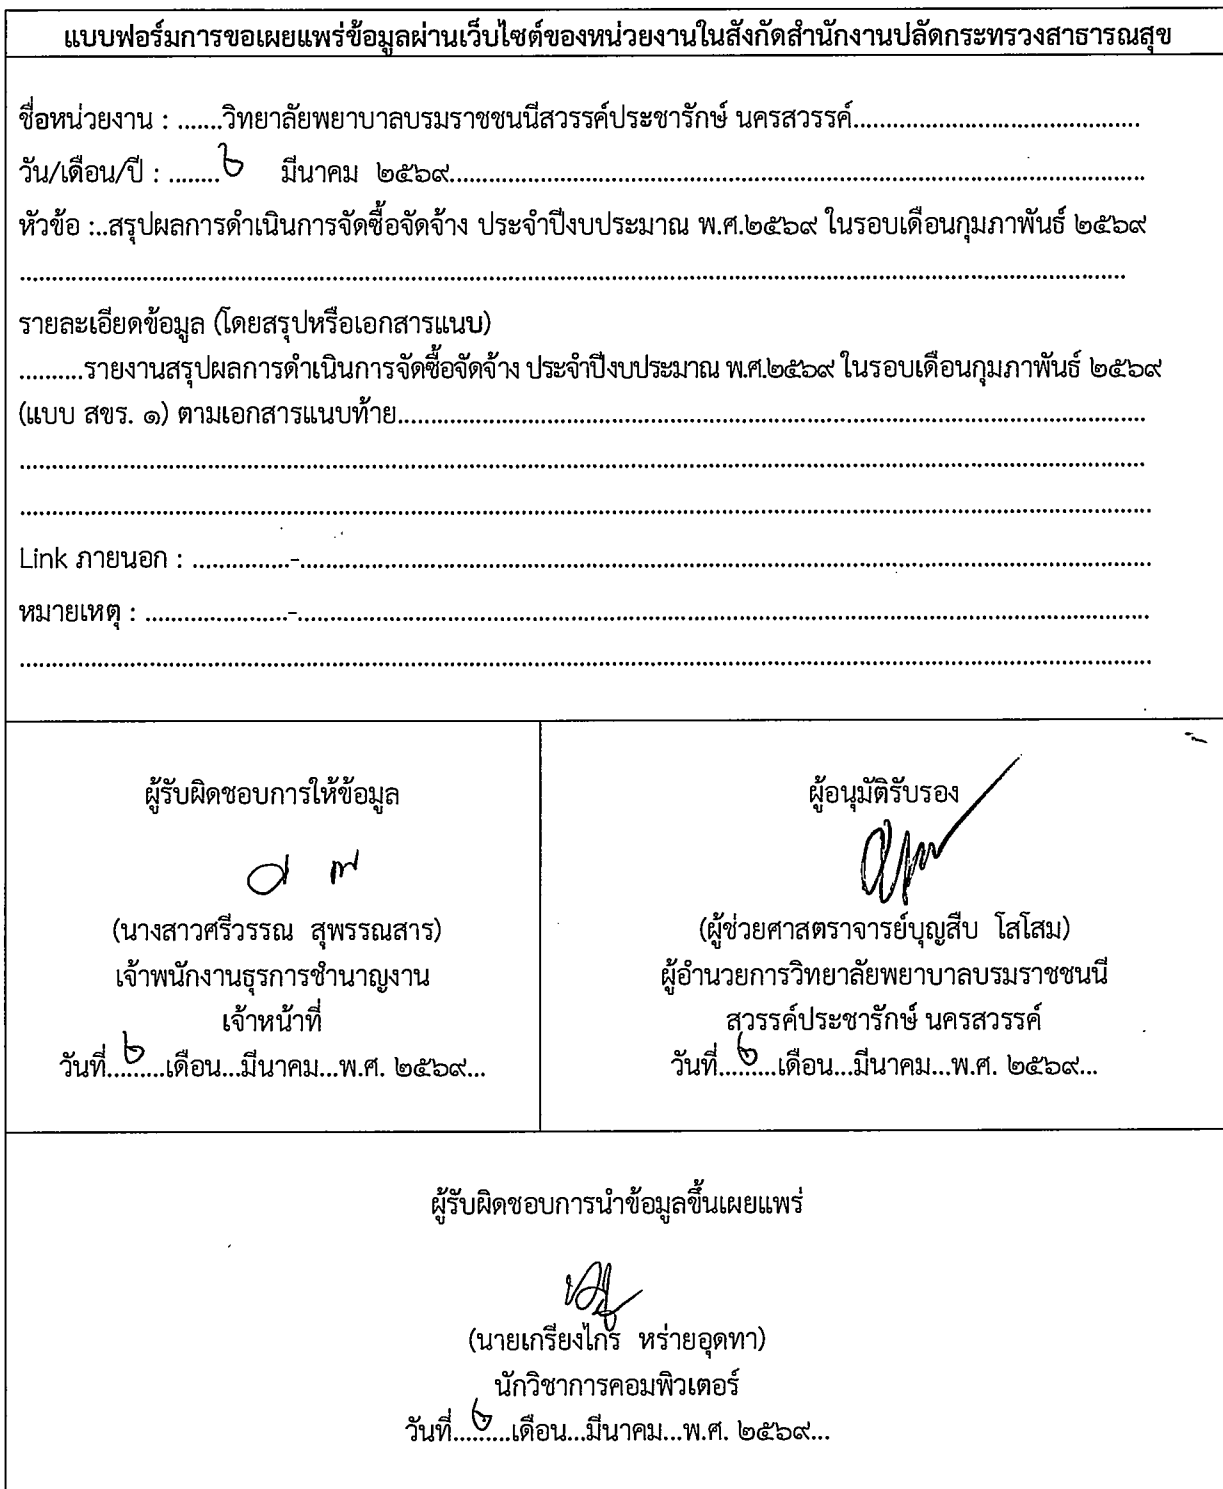 แบบฟอร์มการขอเผยแพร่ข้อมูลผ่านเว็บไซต์ของหน่วยงานในสังกัดสำนักงานปลัดกระทรวงสาธารณสุข
ชื่อหน่วยงาน : .......วิทยาลัยพยาบาลบรมราชชนนีสวรรค์ประชารักษ์ นครสวรรค์............................................
วัน/เดือน/ปี : ........๖ มีนาคม ๒๕๖๙...........................................................................................................
หัวข้อ :..สรุปผลการดำเนินการจัดซื้อจัดจ้าง ประจำปีงบประมาณ พ.ศ.๒๕๖๙ ในรอบเดือนกุมภาพันธ์ ๒๕๖๙
..........................................................................................................................................................................
รายละเอียดข้อมูล (โดยสรุปหรือเอกสารแนบ)
..........รายงานสรุปผลการดำเนินการจัดซื้อจัดจ้าง ประจำปีงบประมาณ พ.ศ.๒๕๖๙ ในรอบเดือนกุมภาพันธ์ ๒๕๖๙
(แบบ สขร. ๑) ตามเอกสารแนบท้าย...................................................................................................................
.............................................................................................................................................................................
..............................................................................................................................................................................
Link ภายนอก : ...............-...................................................................................................................................
หมายเหตุ : ......................-...................................................................................................................................
..............................................................................................................................................................................
ผู้รับผิดชอบการให้ข้อมูล
(นางสาวศรีวรรณ สุพรรณสาร)
เจ้าพนักงานธุรการชำนาญงาน
เจ้าหน้าที่
วันที่....๖.....เดือน...มีนาคม...พ.ศ. ๒๕๖๙...
ผู้อนุมัติรับรอง
(ผู้ช่วยศาสตราจารย์บุญสืบ โสโสม)
ผู้อำนวยการวิทยาลัยพยาบาลบรมราชชนนี
สวรรค์ประชารักษ์ นครสวรรค์
วันที่....๖.....เดือน...มีนาคม...พ.ศ. ๒๕๖๙...
ผู้รับผิดชอบการนำข้อมูลขึ้นเผยแพร่
(นายเกรียงไกร หร่ายอุดทา)
นักวิชาการคอมพิวเตอร์
วันที่....๖.....เดือน...มีนาคม...พ.ศ. ๒๕๖๙...